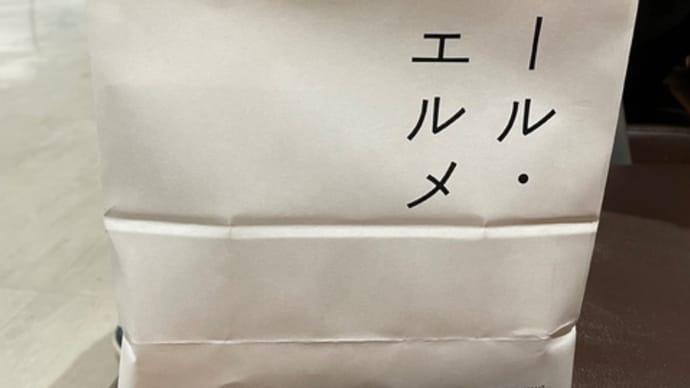 ール・
エルメ